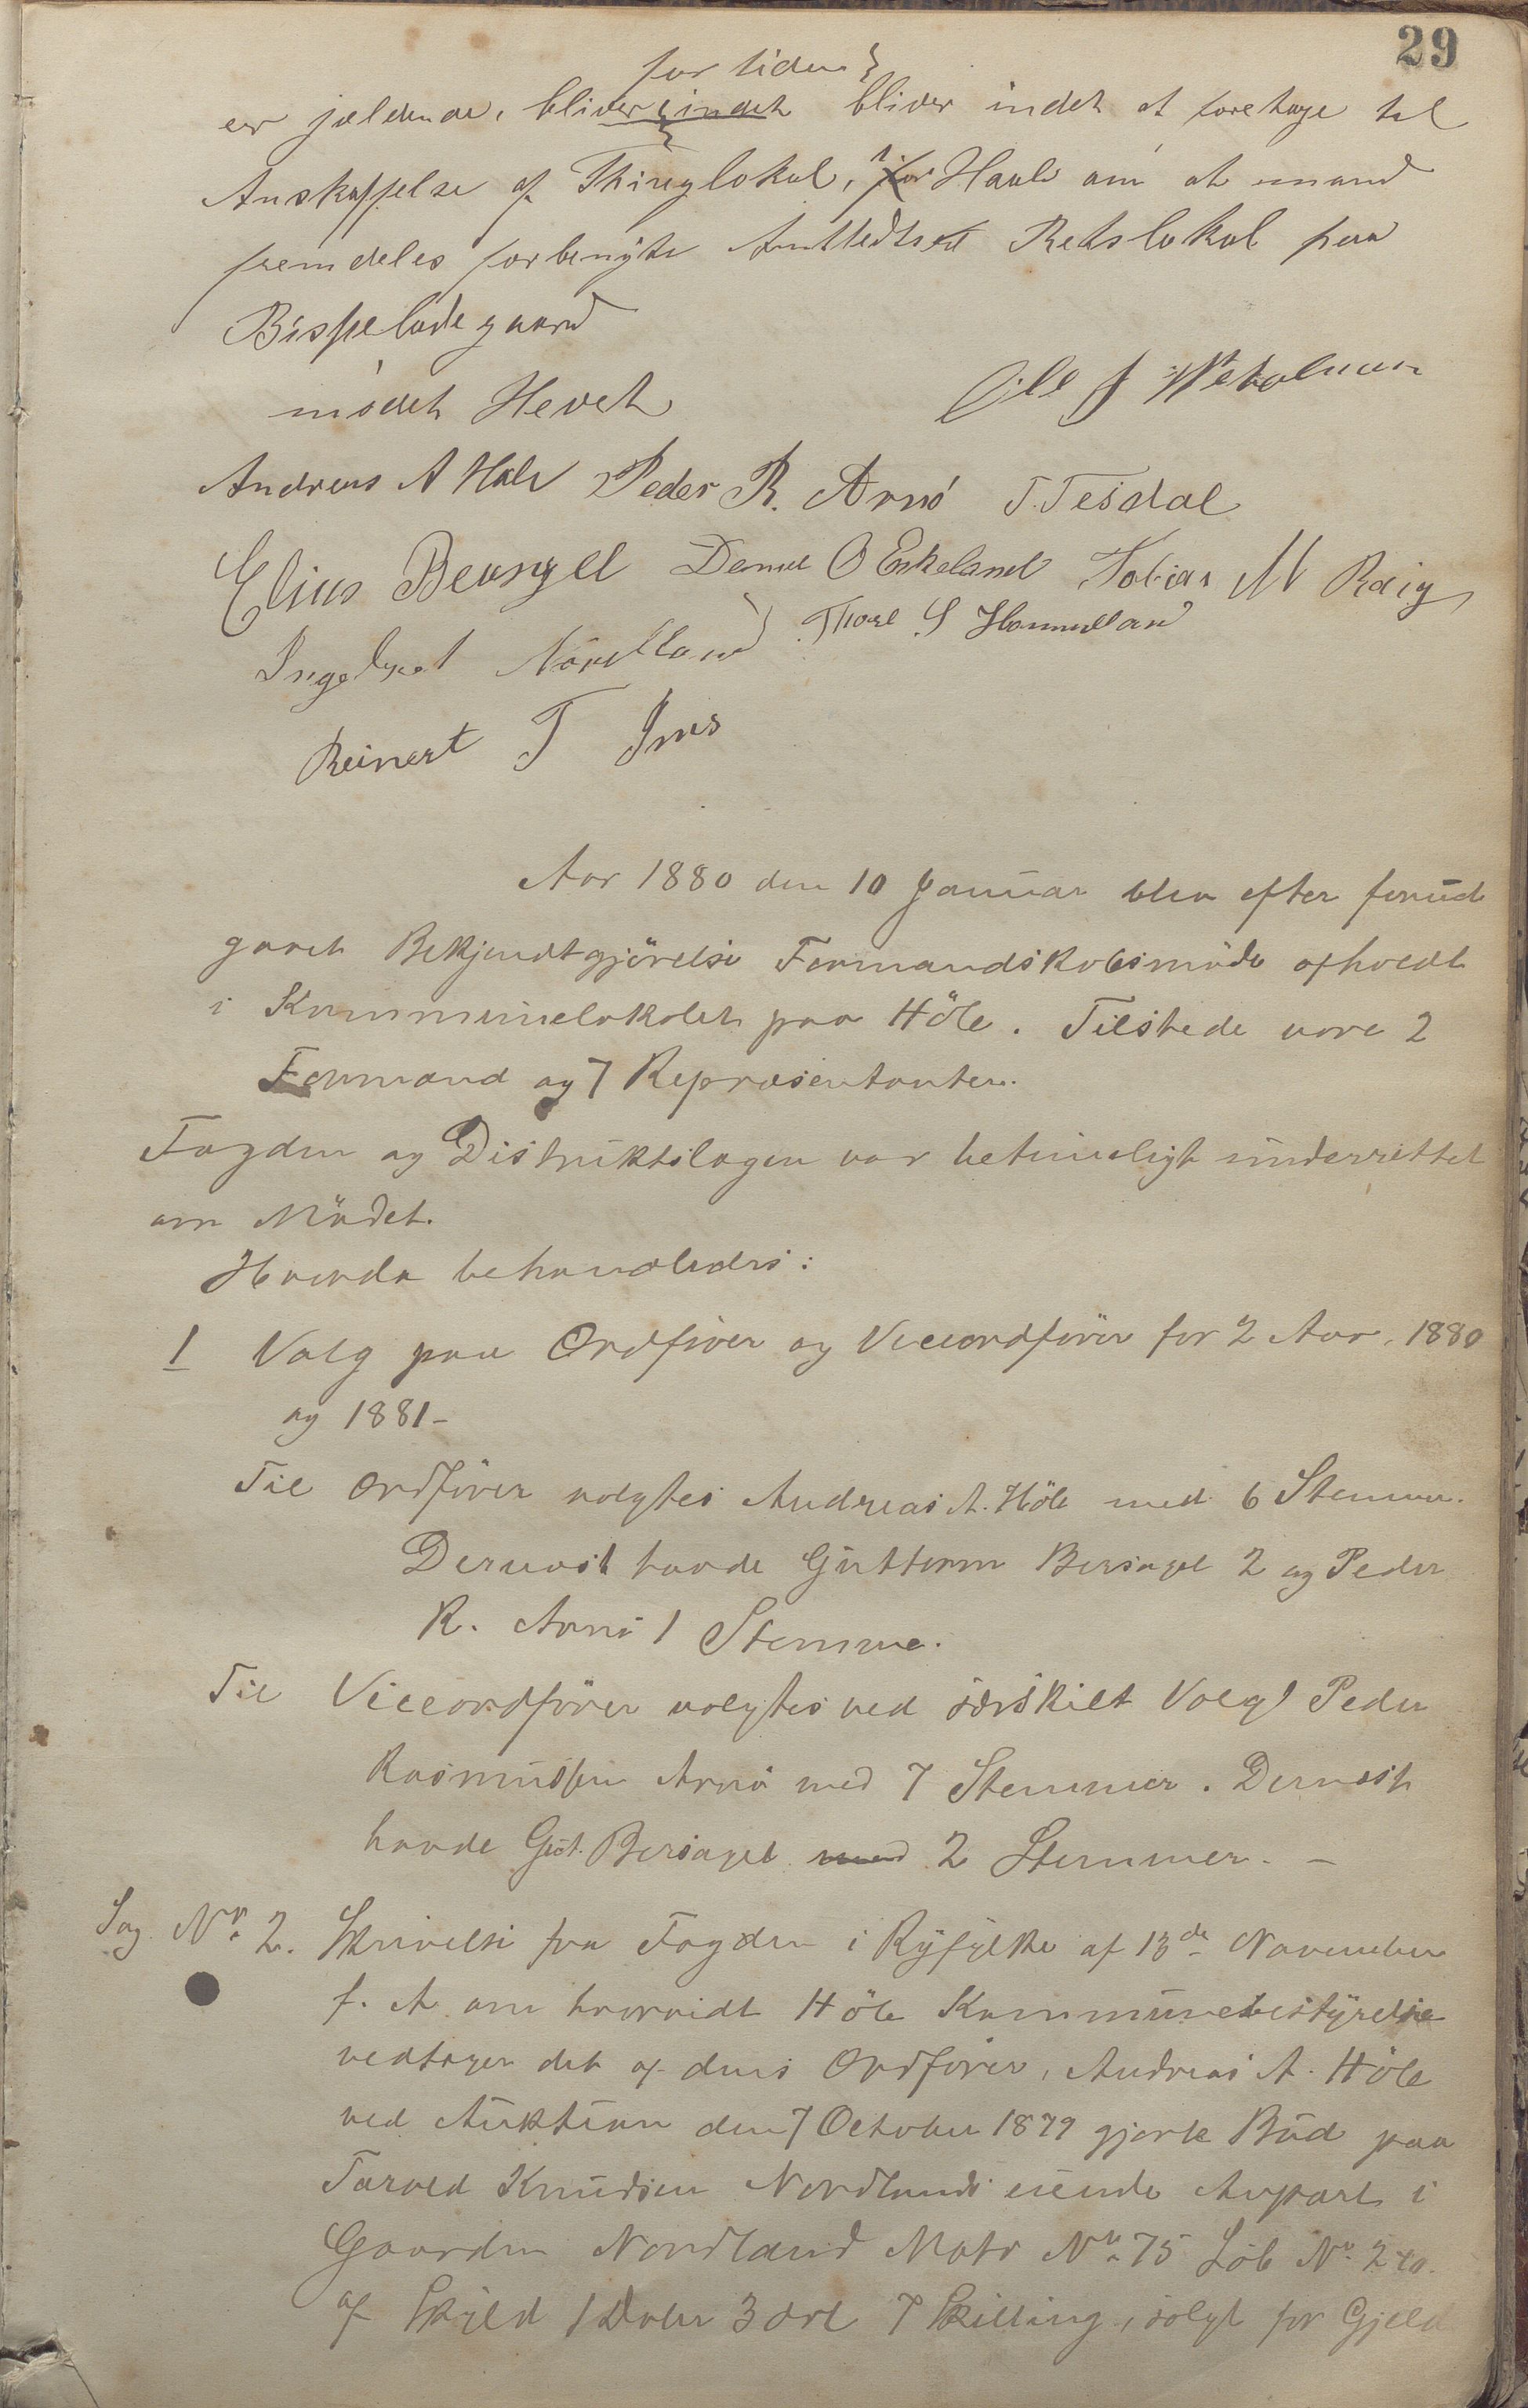 29
for tiden
er jældende, bliver indet bliver indet at foretage til
Anskaffelse af Thinglokal, i Haab om at mand
fremdeles forbenyte Retslokal paa
Bispeladegaard
mødet Hevet
Andreas A Høle Peder R. Arnø T. Tesdal
Elius Bersagel Daniel O Eskeland Tobias M Røig
Ingebret Nordland Thore S Hommeland
Reinert T Ims
Aar 1880 den 10 Januar blev efter forud
gaaet Bekjendtgjörelse Formandskabsmöde afholdt
i Kommunelokalet paa Höle. Tilstede vare 2
Formænd og 7 Repræsentanter.
Fogden og Distriktslægen var betimeligt underrettet
om Mödet.
Hvorda behandledes:
1 Valg paa Ordförer og Viceordförer for 2 Aar, 1880
og 1881 –
Til Ordförer valgtes Andreas A. Höle med 6 Stemmer.
Dernæst havde Guttorm Bersagel 2 og Peder
R. Arnö 1 Stemme.
Til Viceordförer valgtes ved særskilt Valg Peder
Rasmussen Arnö med 7 Stemmer. Dernæst
havde Gut. Bersagel med 2 Stemmer. –
Sag No. 2. Skrivelse fra Fogden i Ryfylke af 13de November
f. A om hvorvidt Höle Kommunebestyrelse
vedtager det af dens Ordförer, Andreas A. Höle
ved Auktion den 7 October 1879 gjorte Bud paa
Tarald Knudsen Nordlands eiende Anpart i
Gaarden Nordland Matr No. 75 Löb No. 240.
af Skyld 1 Daler 3 Ort 7 Skilling, solgt for Gjeld